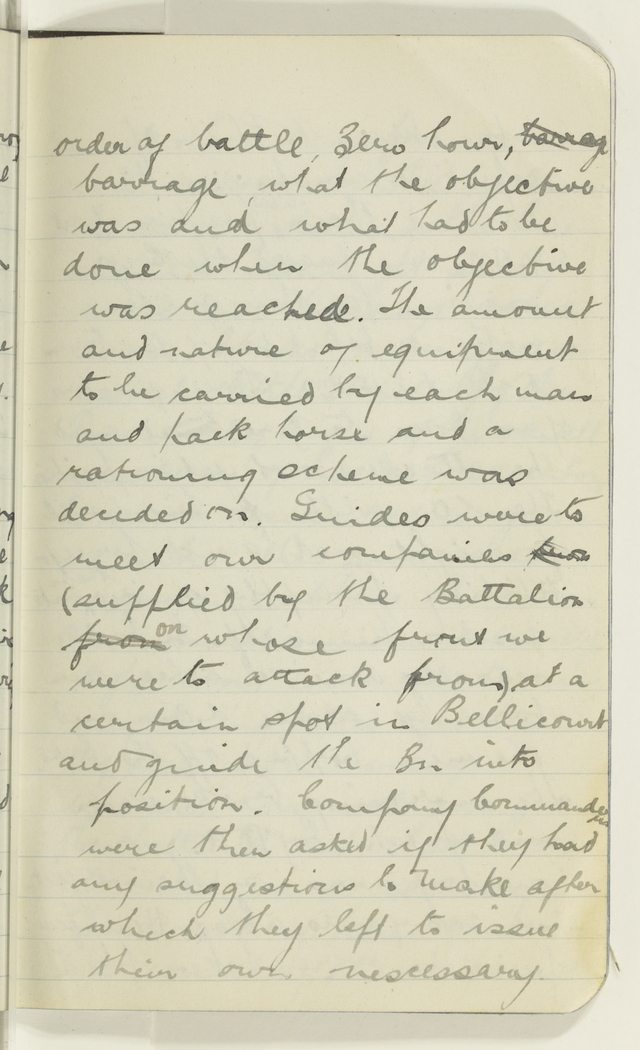 order of battle, Zero hour, barrag
barrage, what the objective
was and what had to be
done when the objective
was reached. The amount
and nature of equipment
to be carried by each man
and pack horse and a
rationing scheme was
decided on. Guides were to
meet our companies from
(supplied by the Battalion
from on whose front we
were to attack from) at a
certain spot in Bellicourt
and guide the Bn into
position. Company Commanders
were then asked if they had
any suggestions to make after
which they left to issue
their own nescessary